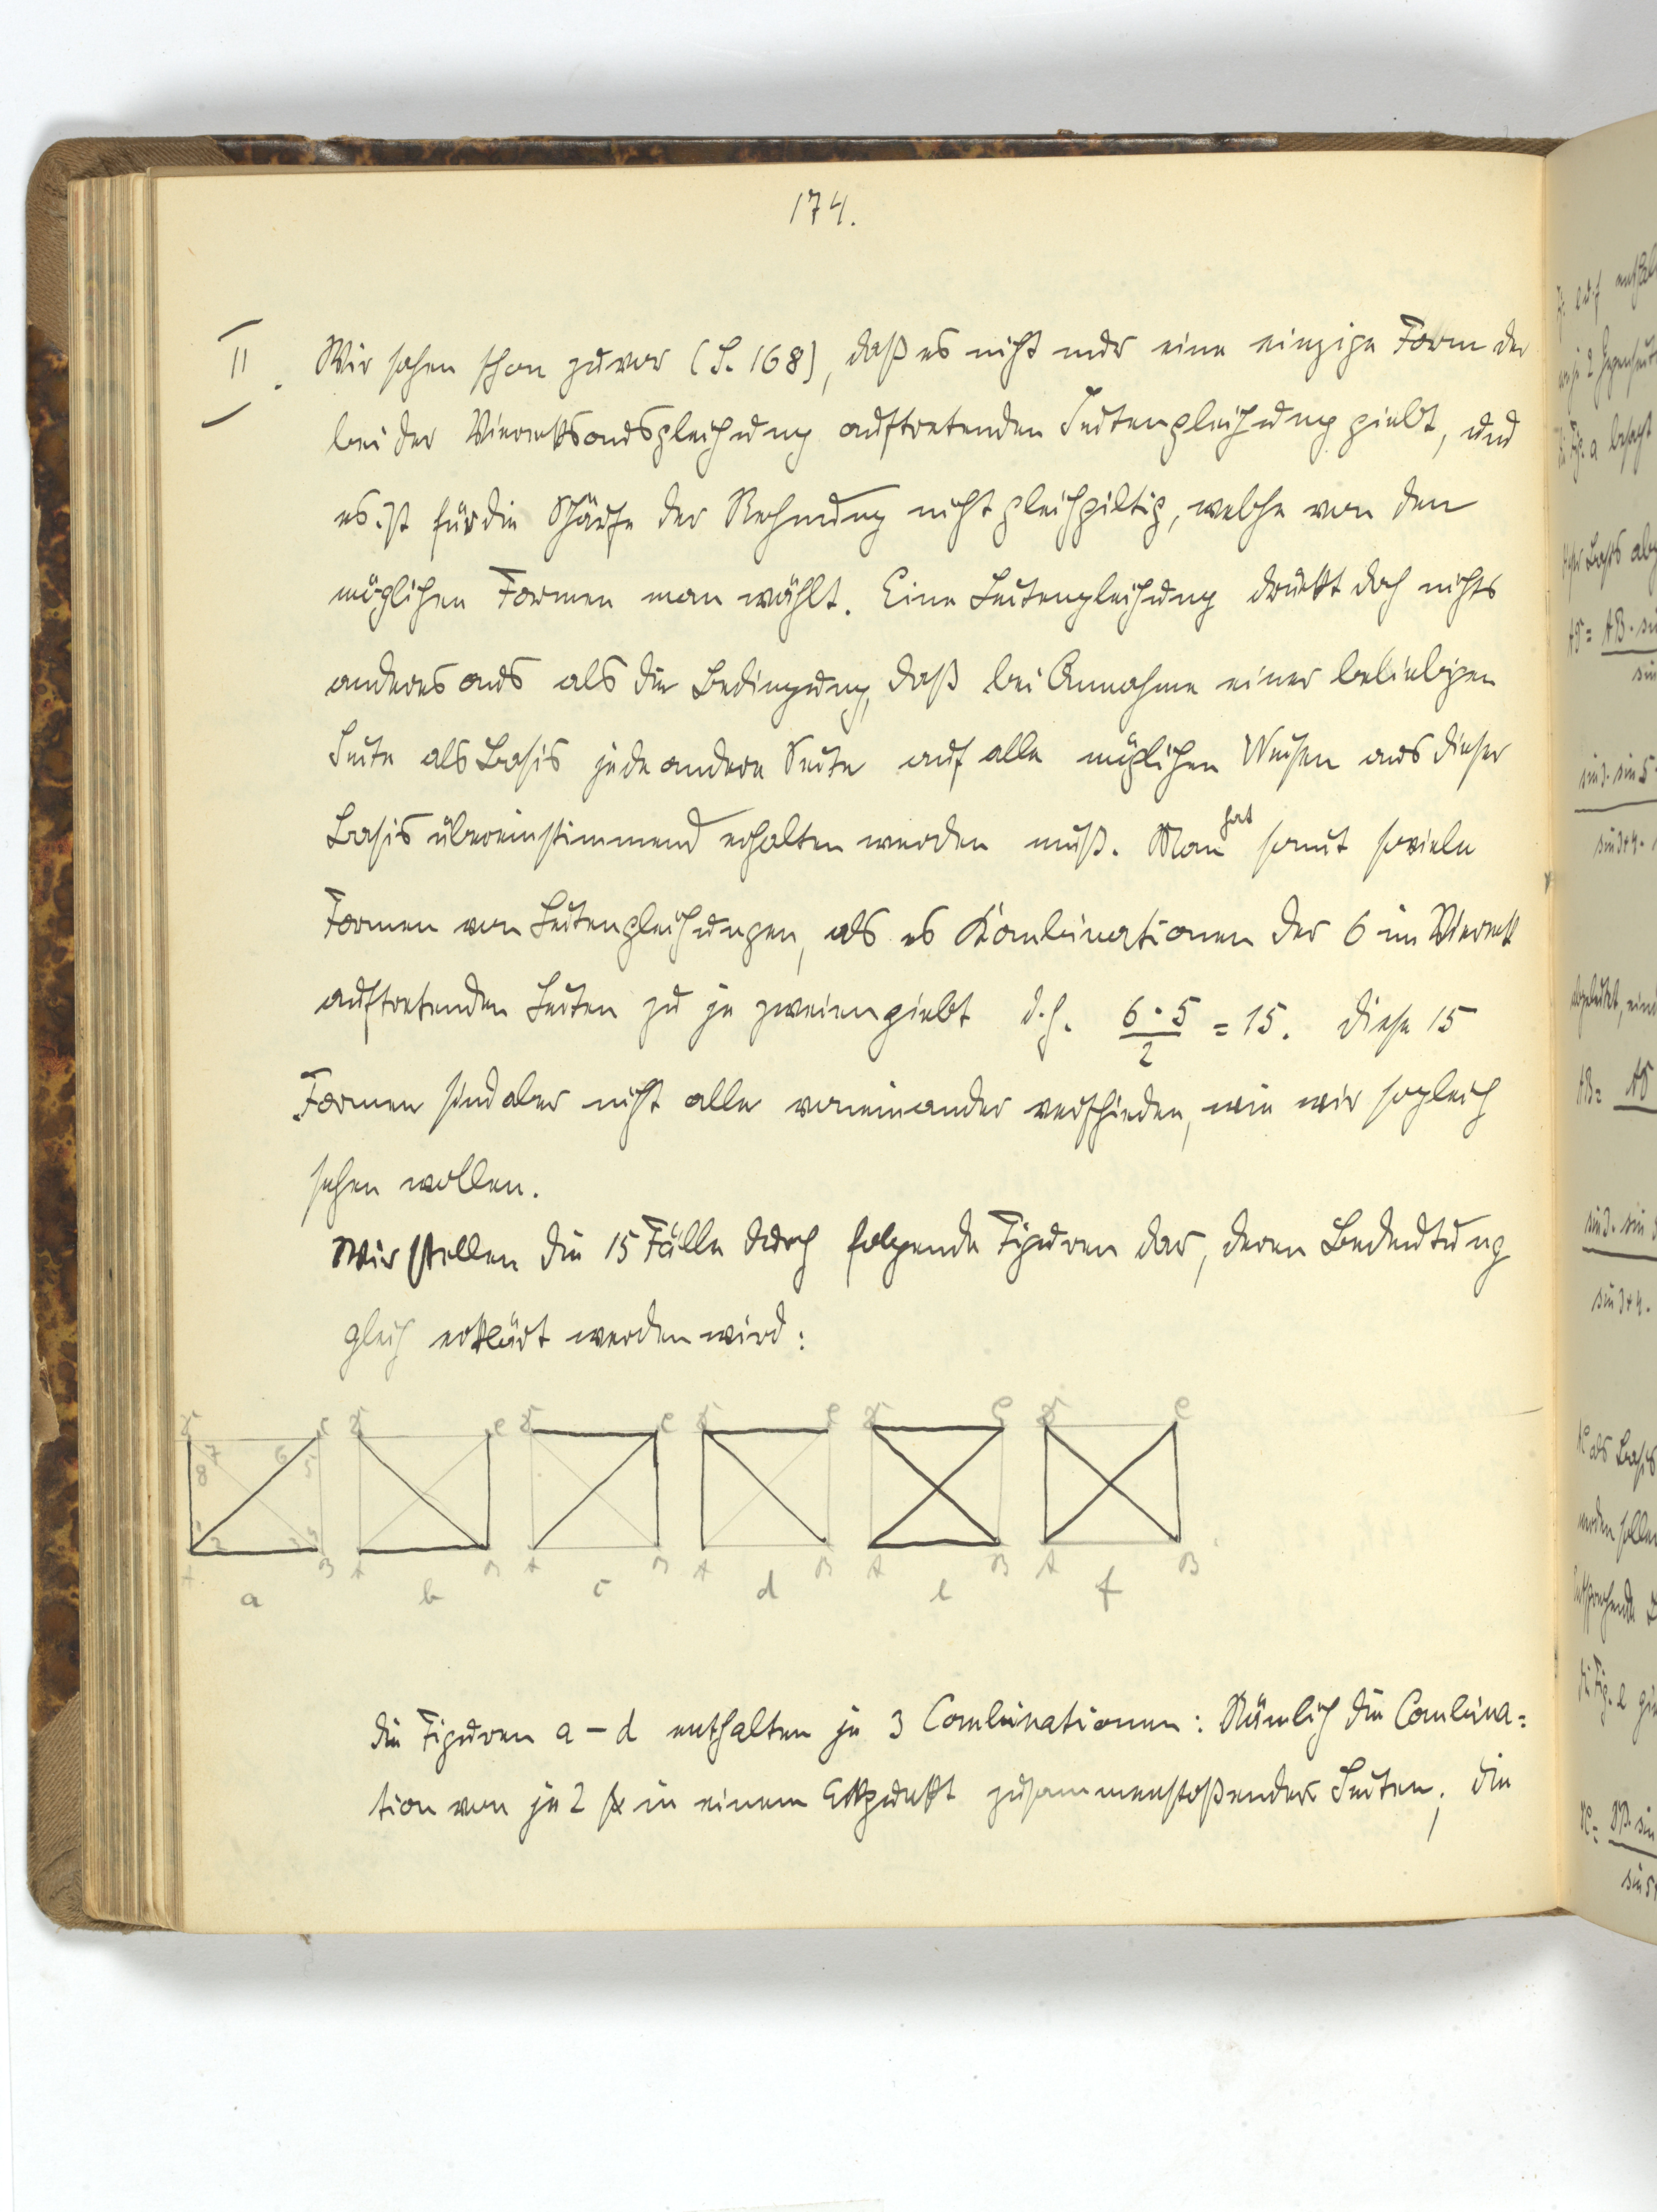 174.
II. Wir sahen schon zuvor (S. 168), daß es nicht nur eine einzige Form der
bei der Vierecksausgleichung auftretenden Seitengleichung giebt, und
es ist für die Schärfe der Rechnung nicht gleichgiltig, welche von den
möglichen Formen man wählt. Eine Seitengleichung drückt doch nichts
anderes aus als die Bedingung, daß bei Annahme einer beliebigen
Seite als Basis jede andere Seite auf alle möglichen Weisen aus dieser
Basis übereinstimmend erhalten werden muß. Man hat somit soviele
Formen von Seitengleichungen, als es Kombinationen der 6 im Viereck
auftretenden Seiten zu je zweien giebt d.h. 6·5/2 = 15. Diese 15
Formen sind aber nicht alle voneinander verschieden, wie wir sogleich
sehen wollen.
Wir stellen die 15 Fälle durch folgende Figuren dar, deren Bedeutung
gleich erklärt werden wird:
7 6 5 8 1 2 3 4
A B A B A B A B A B A B
a b c d e f
Die Figuren a – d enthalten je 3 Combinationen: Nämlich die Combina=
tion von je 2 in einem Eckpunkt zusammenstoßender Seiten; die